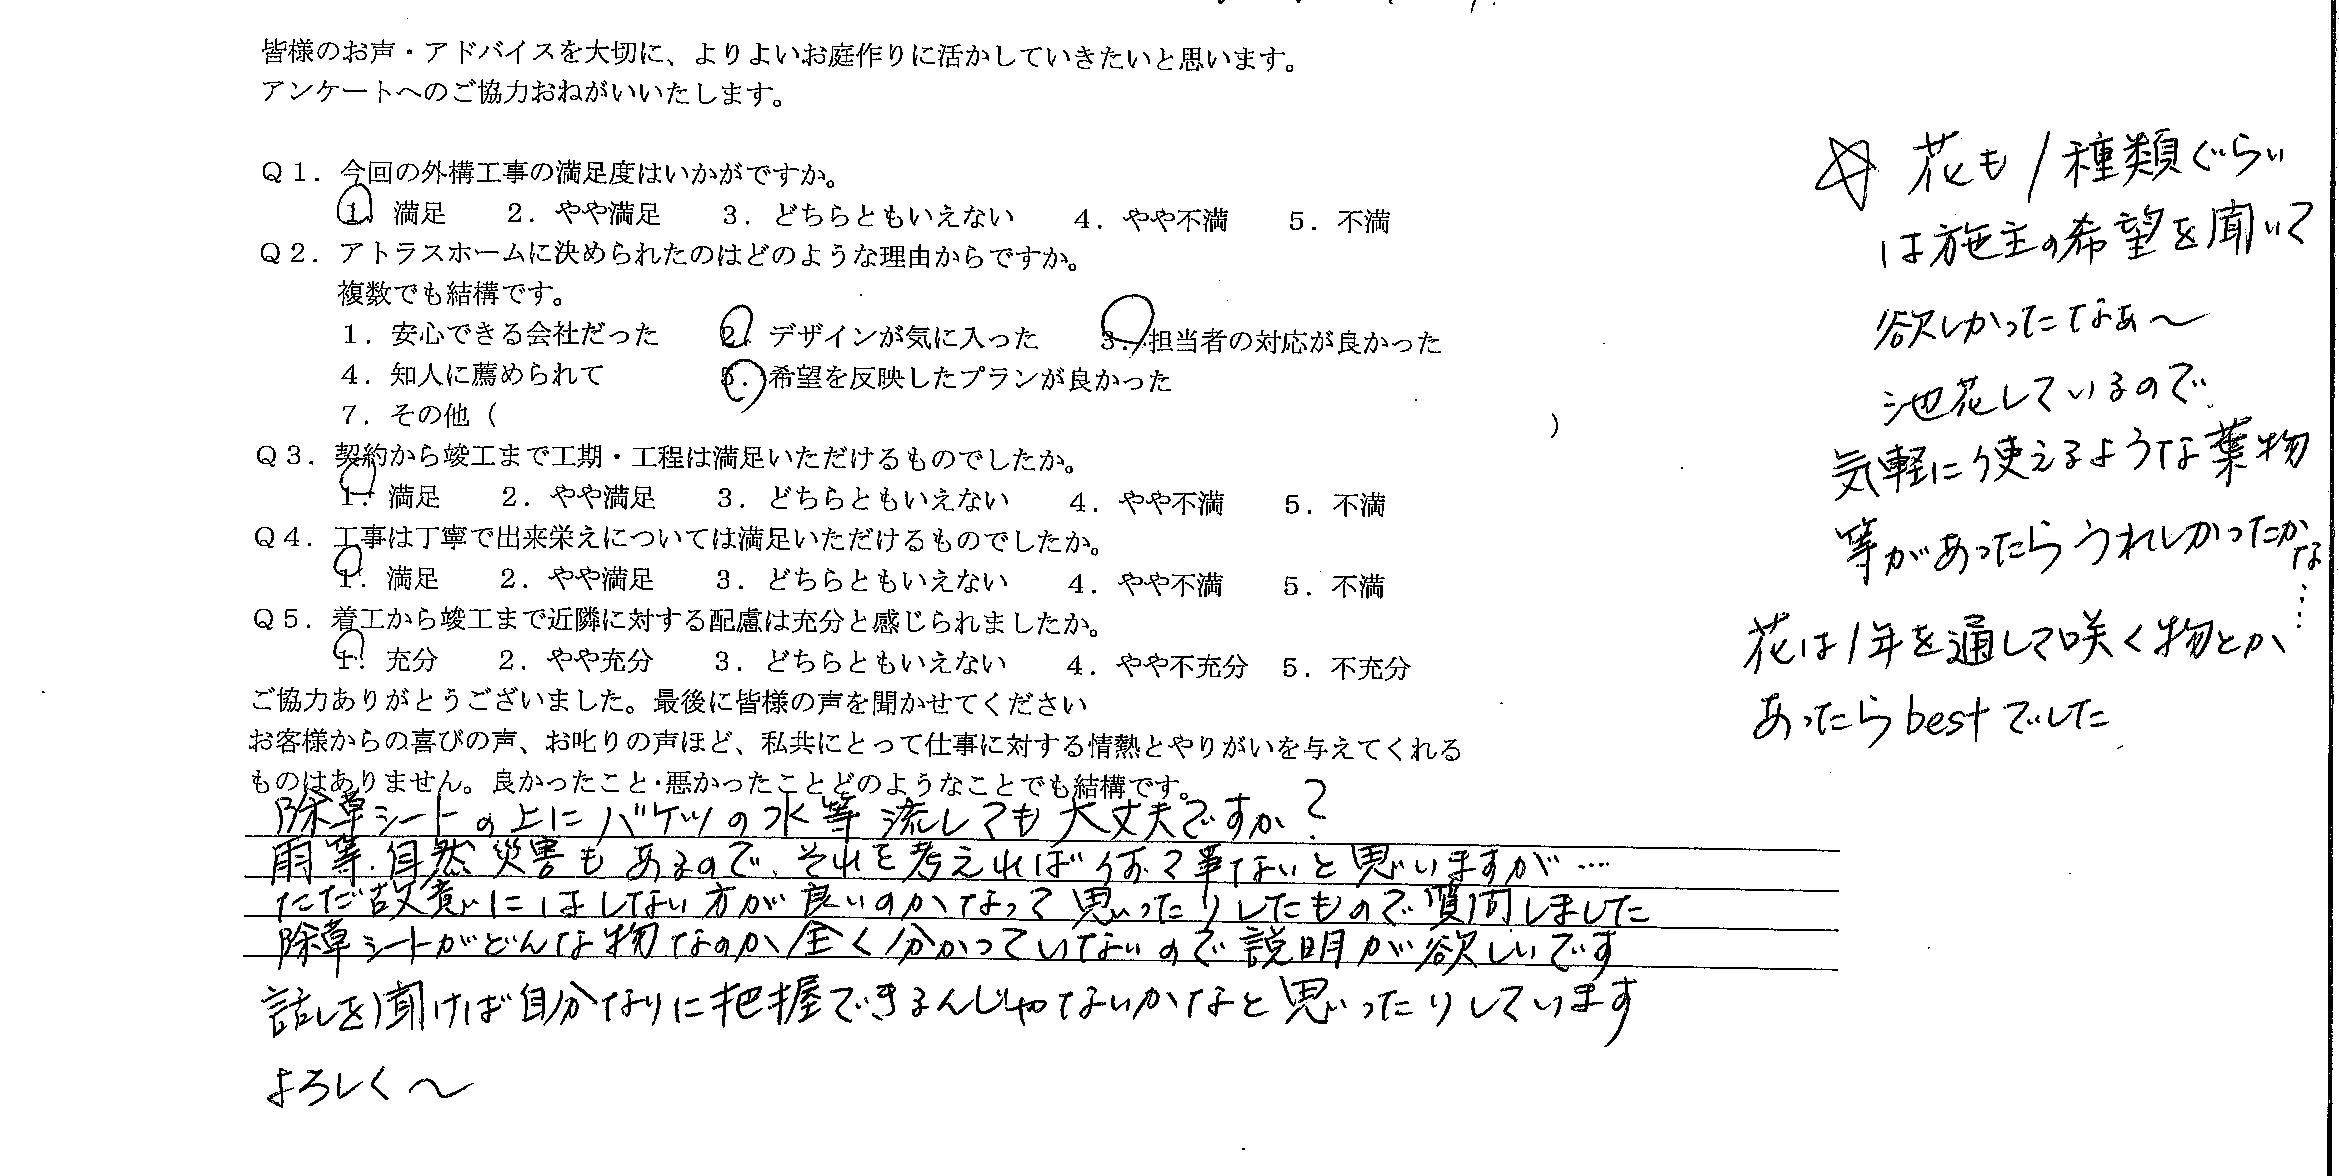 皆様のお声・アドバイスを大切に、よりよいお庭作りに活かしていきたいと思います。
アンケートへのご協力おねがいいたします。
Q1．今回の外構工事の満足度はいかがですか。
1．満足　2．やや満足　3．どちらともいえない　4．やや不満　5．不満
Q2．アトラスホームに決められたのはどのような理由からですか。
複数でも結構です。
1．安心できる会社だった　2．デザインが気に入った　3．担当者の対応が良かった
4．知人に薦められて　5．希望を反映したプランが良かった
7．その他（　）
Q3．契約から竣工まで工期・工程は満足いただけるものでしたか。
1．満足　2．やや満足　3．どちらともいえない　4．やや不満　5．不満
Q4．工事は丁寧で出来栄えについては満足いただけるものでしたか。
1．満足　2．やや満足　3．どちらともいえない　4．やや不満　5．不満
Q5．着工から竣工まで近隣に対する配慮は充分と感じられましたか。
1．充分　2．やや充分　3．どちらともいえない　4．やや不充分　5．不充分
ご協力ありがとうございました。最後に皆様の声を聞かせてください
お客様からの喜びの声、お叱りの声ほど、私共にとって仕事に対する情熱とやりがいを与えてくれる
ものはありません。良かったこと・悪かったことどのようなことでも結構です。
除草シートの上にバケツの水等流しても大丈夫ですか？
雨等、自然災害もあるので、それを考えれば何て事ないと思いますが‥‥
ただ故意にはしない方が良いのかなって思ったりしたもので質問しました
除草シートがどんな物なのか全く分かっていないので説明が欲しいです
話しを聞けば自分なりに把握できるんじゃないかなと思ったりしています
よろしく～
☆ 花も1種類ぐらい
は施主の希望を聞いて
欲しかったなぁ～
池花しているので、
気軽に使えるような葉物
等があったらうれしかったかな‥‥
花は1年を通して咲く物とか
あったらbestでした